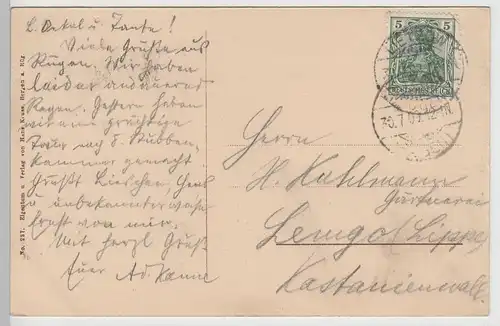 L. Onkel u. Tante!
Viele Grüße aus
Rügen. Wir haben
leider andauernd
Regen. Gestern haben
wir eine
Tour nach d. Stubben-
kammer gemacht
Grüßt Lieschen, Hans
u. unbekannter
von mir.
Mit herzl. Gruß
Euer Ad. Kanne
No. 227. Eigentum u. Verlag von Hans Krüss, Bergen a. Rüg
5 5
30.7.09
Herrn
H. Kuhlmann
Gärtnerei
Lemgo (Lippe)
Kastanienwall